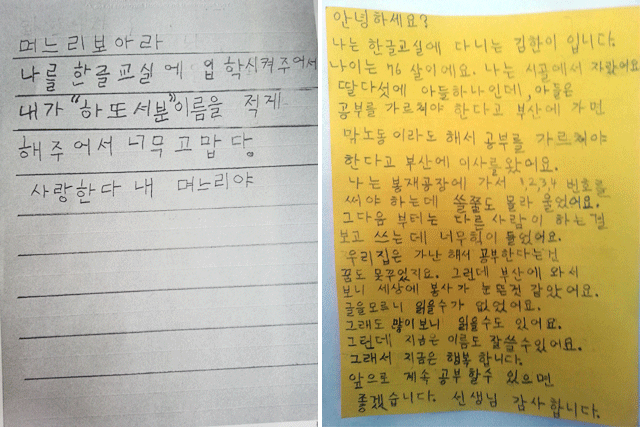 며느리보아라
나를 한글교실에 입학시켜주어서
내가 "하또서분"이름을 적게
해주어서 너무고맙당
사랑한다 내 며느리야
안녕하세요?
나는 한글교실에 다니는 김한이 입니다.
나이는 76 살이에요. 나는 시골에서 자랐어요.
딸다섯에 아들하나인데, 아들은
공부를 가르쳐야 한다고 부산에 가면
막노동이라도 해서 공부를 가르쳐야
한다고 부산에 이사를 왔어요.
나는 봉재공장에 가서 1,2,3,4 번호를
써야 하는데 쓸줄도 몰라 울었어요.
그다음 부터는 다른 사람이 하는걸
보고 쓰는데 너무힘이 들었어요.
우리집은 가난 해서 공부한다는건
꿈도 못꾸었지요. 그런데 부산에 와서
보니 세상에 봉사가 눈뜬것 같았어요.
글을모르니 읽을수가 없었어요.
그래도 많이보니 읽을수도 있어요.
그런데 지금은 이름도 잘쓸수있어요.
그래서 지금은 행복 합니다.
앞으로 계속 공부할수 있으면
좋겠습니다. 선생님 감사합니다.